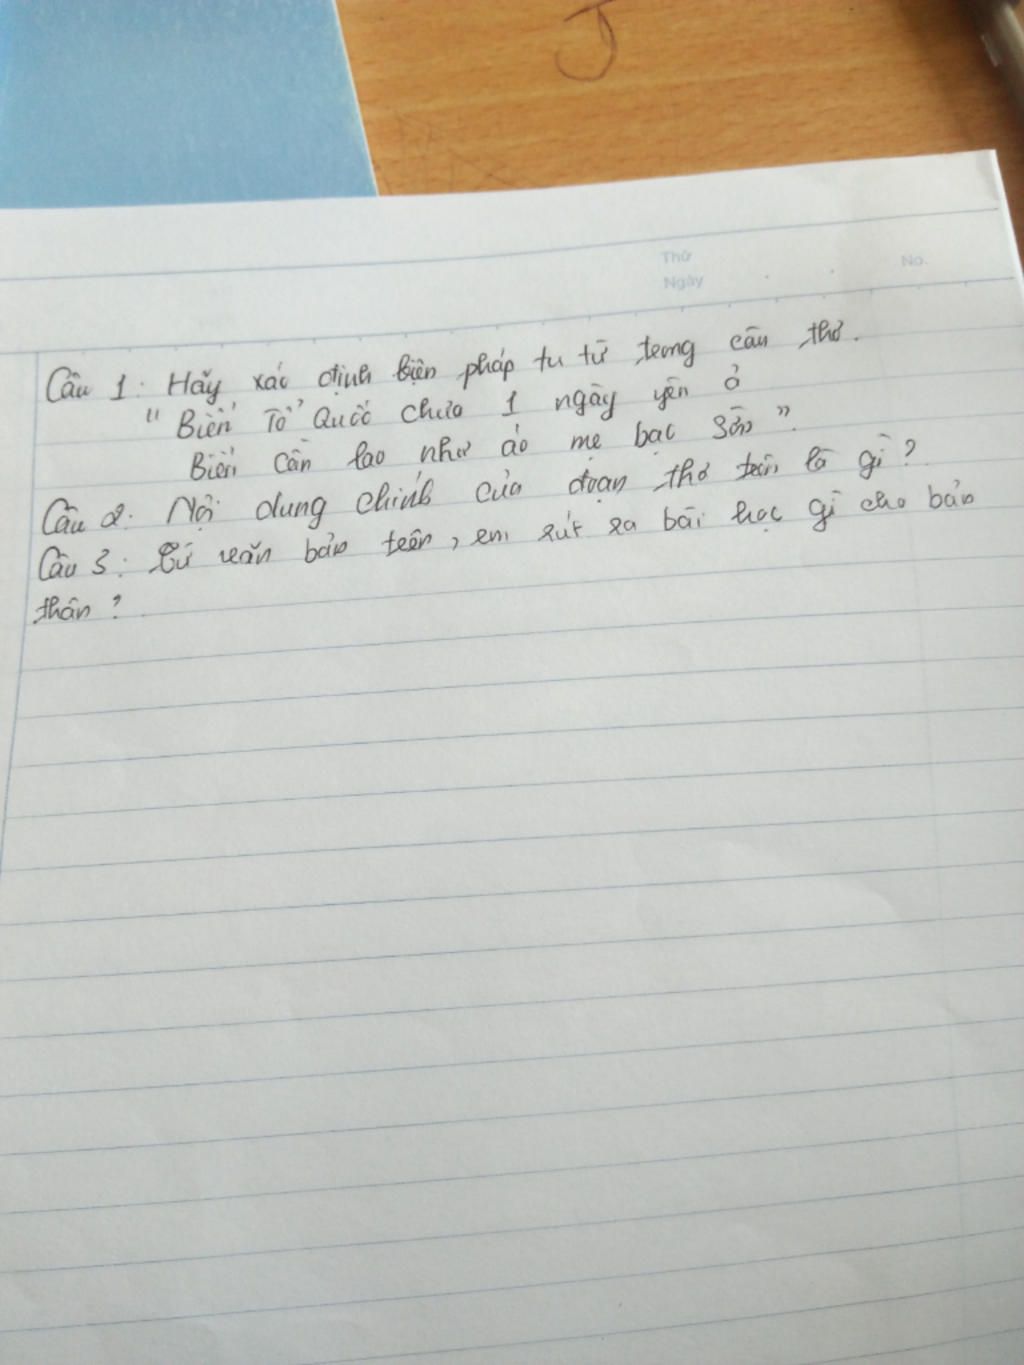 J
Thứ
Ngày
No.
Câu 1: Hãy xác định biện pháp tu từ trong câu thơ.
" Biển Tổ Quốc chưa 1 ngày yên ả
Biển cần lao như áo mẹ bạc sờn ".
Câu 2: Nội dung chính của đoạn thơ trên là gì?
Câu 3: Từ văn bản trên, em rút ra bài học gì cho bản
thân?